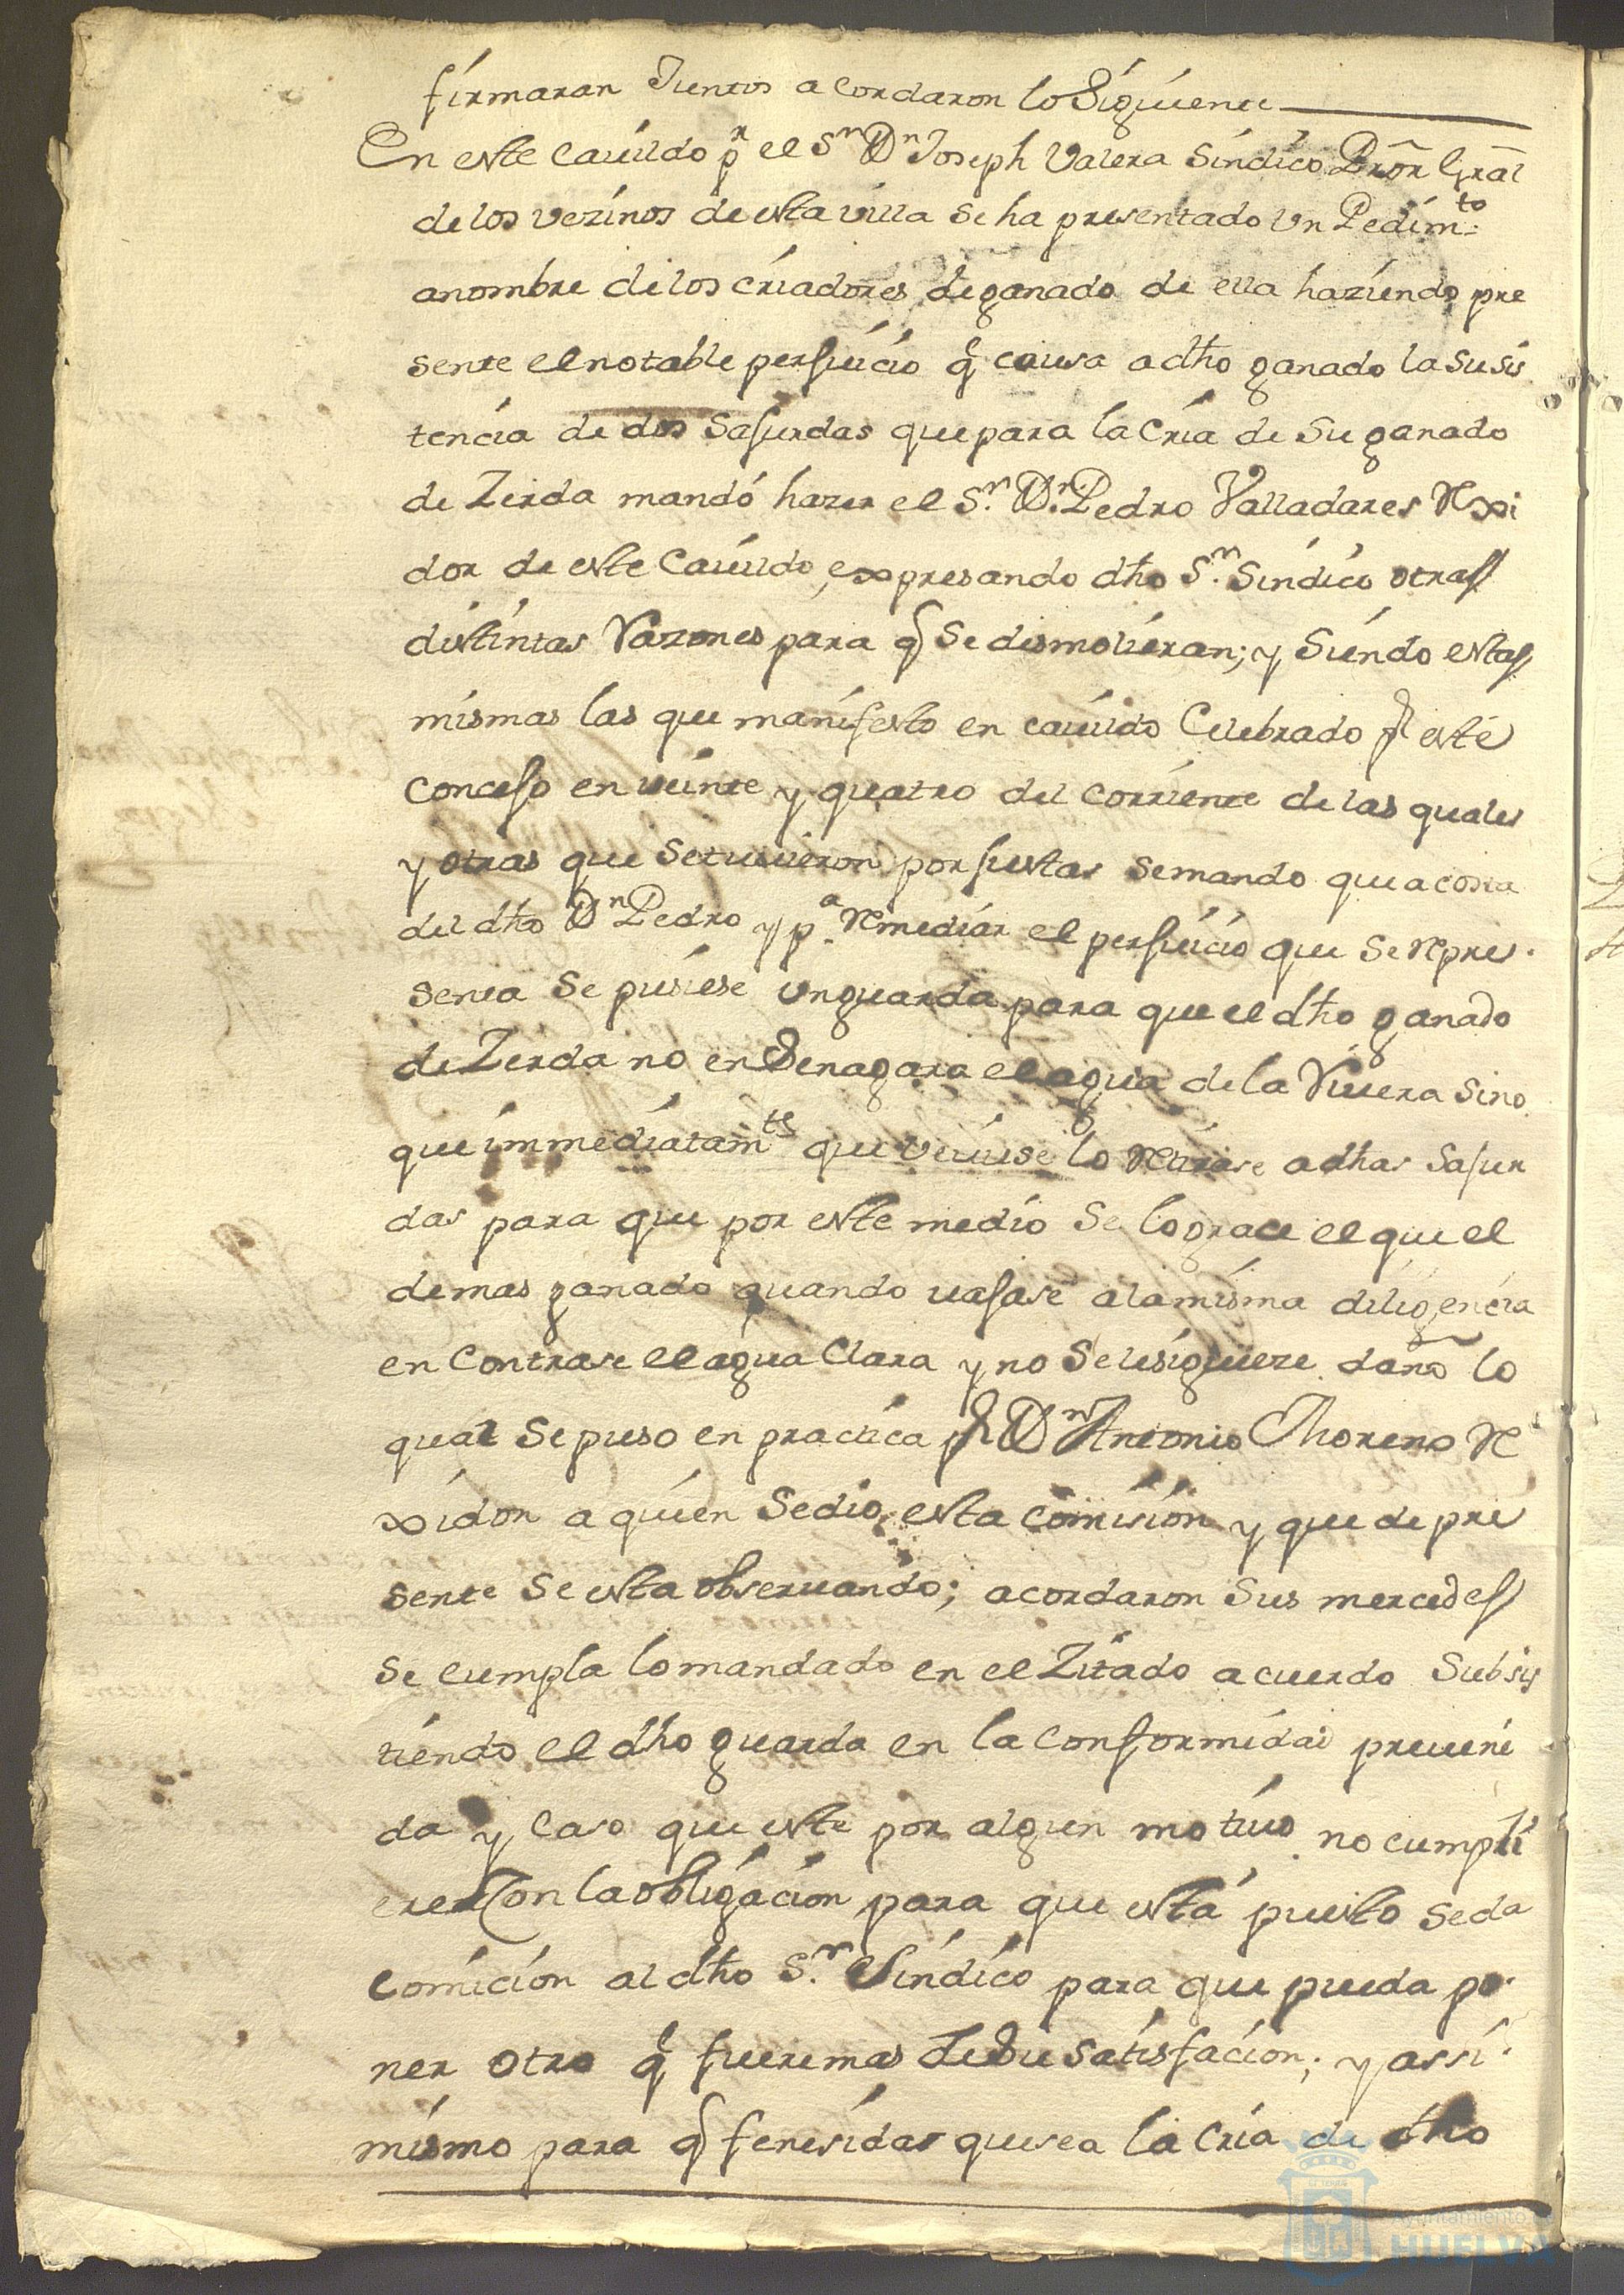 firmaran Juntos acordaron lo Siguiente
En este cauildo pr el Sn Dn Joseph Valera Sindico Pror Gral
de los vezinos de esta villa Se ha presentado Un Pedimto
a nombre de los criadores de ganado de ella haziendo pre
sente el notable perjuicio q causa a dho ganado la susis
tencia de dos Sajurdas que para la Cria de Su ganado
de Zerda mandó hazer el Sr. Dn. Pedro Valladares Rexi
dor de este Cauildo, expresando dho Sr. Sindico otras
distintas Razones para q Se dismolieran; y Siendo estas
mismas las que manifesto en cauildo Celebrado pr este
Concejo en veinte y quatro del corriente de las quales
y otras que se tuuieron por justas se mando que a costa
del dho Dn Pedro y pa. Remediar el perjuicio que se repre
senta se pusiese un guarda para que el dho ganado
de Zerda no enSenagara el agua de la Riuera sino
que immediatamte que veuiese lo retirase a dhas Sajur
das para que por este medio Se lograce el que el
demas ganado quando vajase a la misma diligencia
encontrase el agua Clara y no se le siguiere daño lo
qual se puso en practica pr Dn Antonio Moreno Re
xidor a quien se dio esta comision y que de pre
sente se esta obseruando; acordaron Sus mercedes
Se cumpla lo mandado en el Zitado acuerdo Subsis
tiendo el dho guarda en la conformidad preueni
da y caso que este por algun motiuo no cumpli
ere Con la obligacion para que está puesto se da
comicion al dho Sr. Sindico para que pueda po
ner otro q fuere mas de Su satisfacion; y assi
mismo para q fenesidas que sea la Cria de dho
Ayuntamiento de
HUELVA